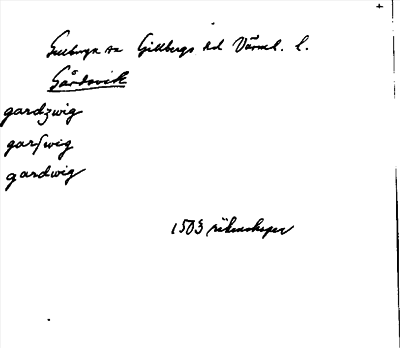 Gillberga sn Gillbergs hd Värml. l.
Gårdsvik
gardzwig
garſwig
gardwig
1503 räkenskaper